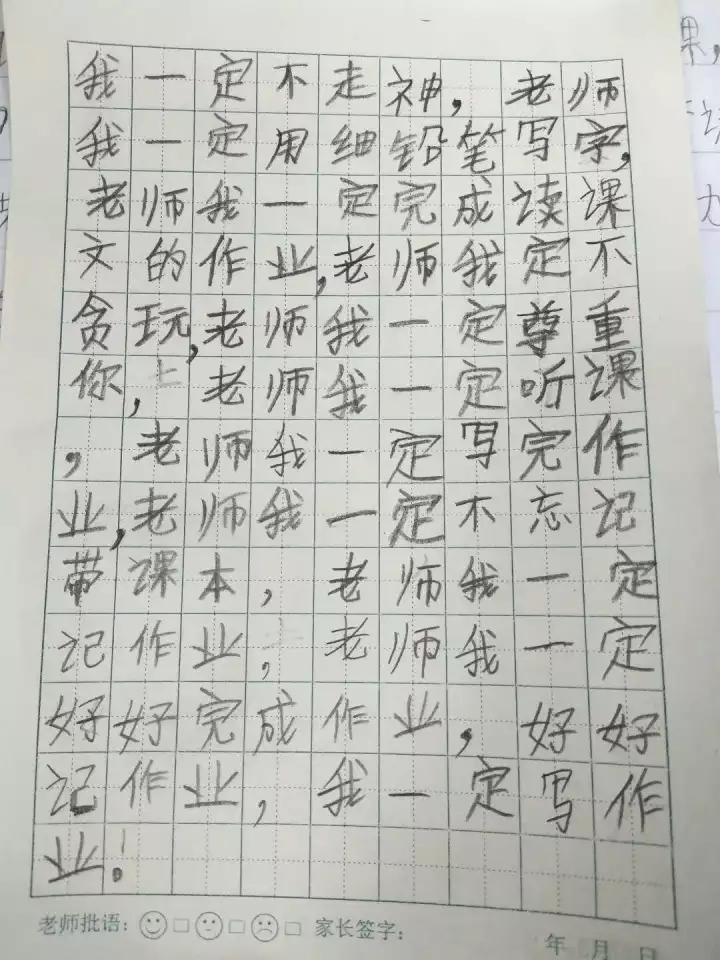 我一定不走神，老师
我一定用细铅笔写字，
老师我一定完成读课
文的作业，老师我定不
贪玩，老师我一定尊重
你，老师我一定听课
，老师我一定写完作
业，老师我一定不忘记
带课本，老师我一定
记作业，老师我一定
好好完成作业，好好
记作业，我一定写作
业！
老师批语：□ □ □ 家长签字：
年 月 日